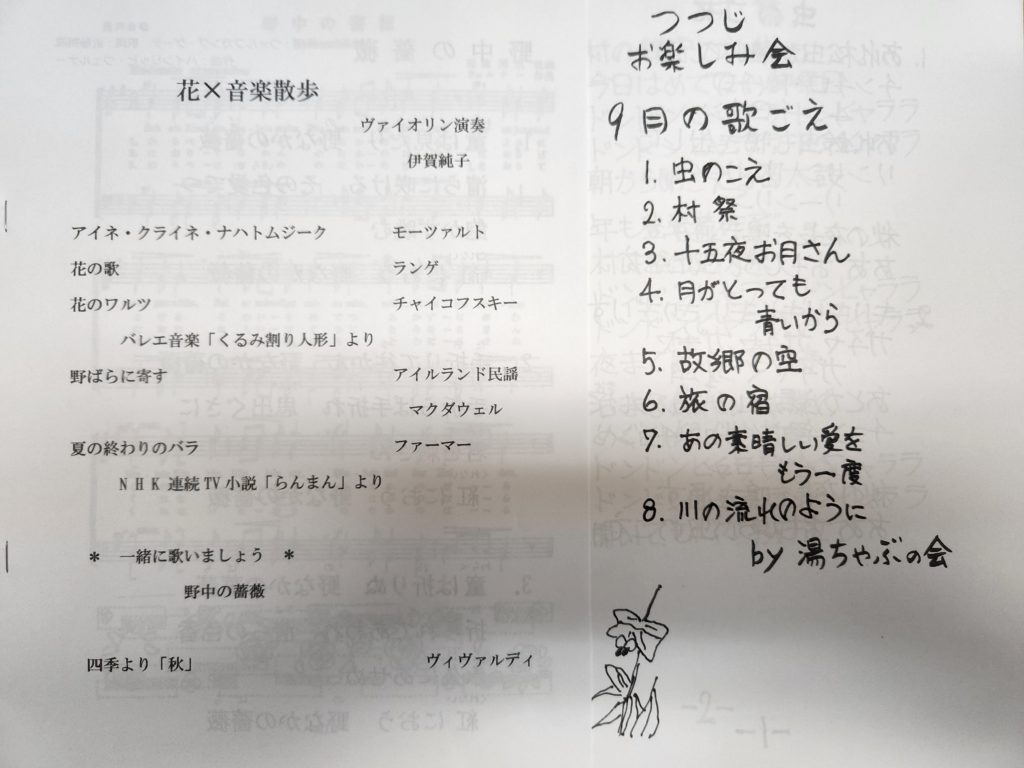 花×音楽散歩
ヴァイオリン演奏
伊賀純子
アイネ・クライネ・ナハトムジーク モーツァルト
花の歌 ランゲ
花のワルツ チャイコフスキー
バレエ音楽「くるみ割り人形」より
野ばらに寄す アイルランド民謡
マクダウェル
夏の終わりのバラ ファーマー
NHK 連続TV小説「らんまん」より
＊ 一緒に歌いましょう ＊
野中の薔薇
四季より「秋」 ヴィヴァルディ
つつじ
お楽しみ会
9月の歌ごえ
1. 虫のこえ
2. 村祭
3. 十五夜お月さん
4. 月がとっても
青いから
5. 故郷の空
6. 旅の宿
7. あの素晴しい愛を
もう一度
8. 川の流れのように
by 湯ちゃぶの会